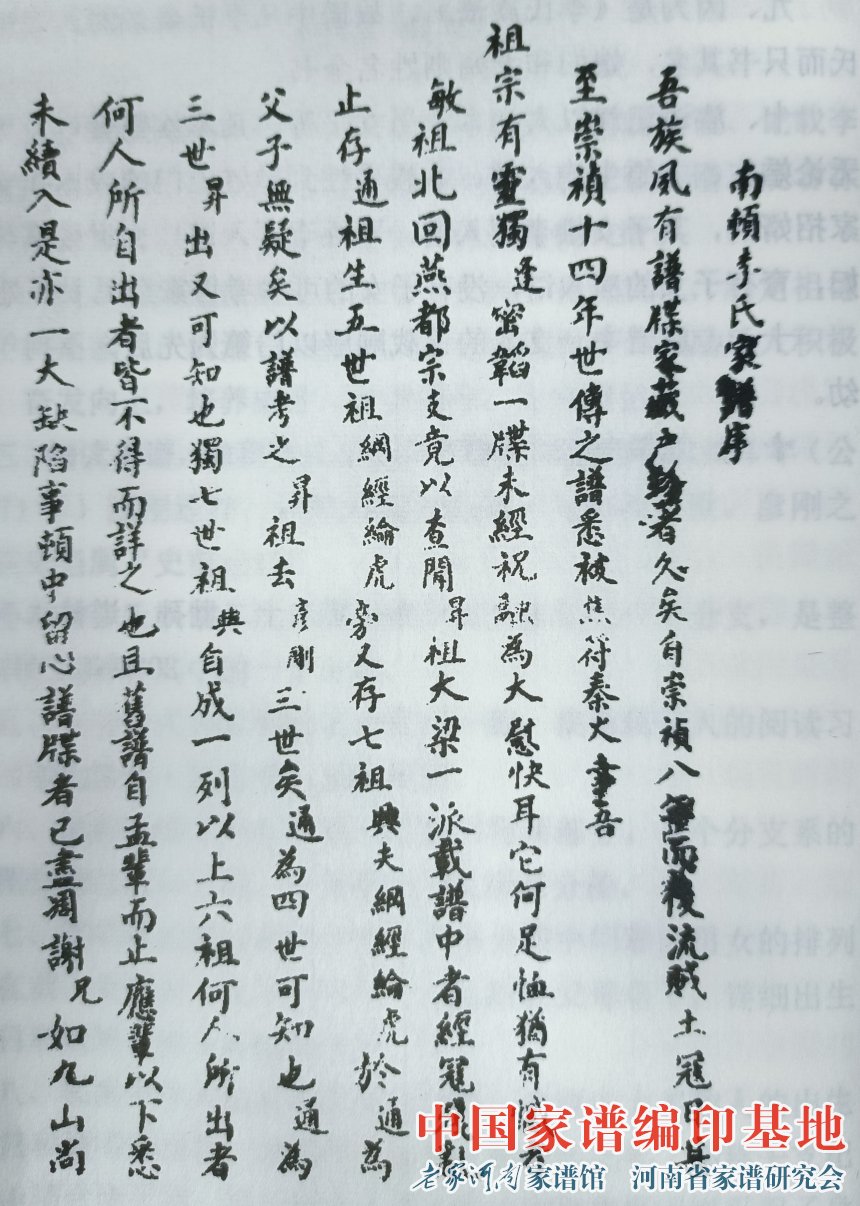 南頓李氏家譜序
吾族夙有譜牒家藏戶  者久矣自崇禎八年而後流賊土冦日甚
至崇禎十四年世傳之譜悉被焦符秦火幸吾
祖宗有靈獨逢密韜一牒未經祝融為大慰快耳它何足恤猶有
敏祖北回燕都宗支竟以查聞昇祖大梁一派載譜中者經冠
止存通祖生五世祖綱經綸虎旁又存七祖興夫綱經綸虎於通為
父子無疑矣以譜考之昇祖去彥剛三世矣通為四世可知也通為
三世昇出又可知也獨七世祖興自成一列以上六祖何人所出者
何人所自出者皆不得而詳之也且舊譜自孟輩而止應輩以下悉
未續入是亦一大缺陷事頓中留心譜牒者已盡凋謝兄如九山尚
中国家谱编印基地
老家河南家谱馆 河南省家谱研究会